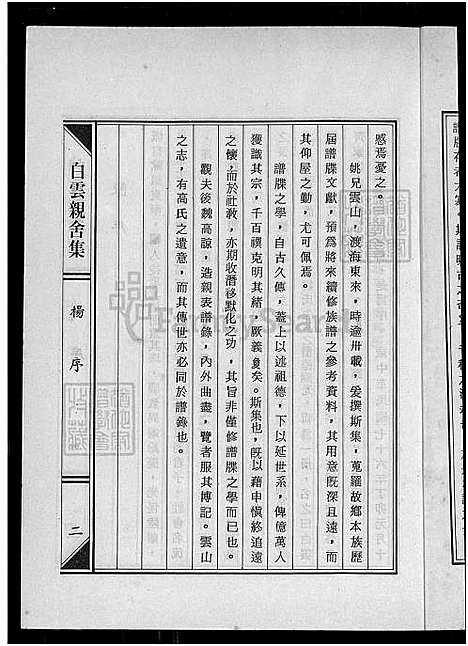 慼焉憂之。
姚兄雲山，渡海東來，時逾卅載，爰撰斯集，蒐羅故鄉本族歷
屆譜牒文獻，預為將來續修族譜之參考資料，其用意既深且遠，而
其仰屋之勤，尤可佩焉。
譜牒之學，自古久傳，蓋上以述祖德，下以延世系，俾億萬人
獲識其宗，千百禩克明其緒，厥義夐矣。斯集也，既以藉申愼終追遠
之懷，而於社教，亦期收潛移默化之功，其旨非僅修譜牒之學而已也。
觀夫後魏高諒，造親表譜錄，內外曲盡，覽者服其博記。雲山
之志，有高氏之遺意，而其傳世亦必同於譜錄也。
白雲親舍集
楊序
二